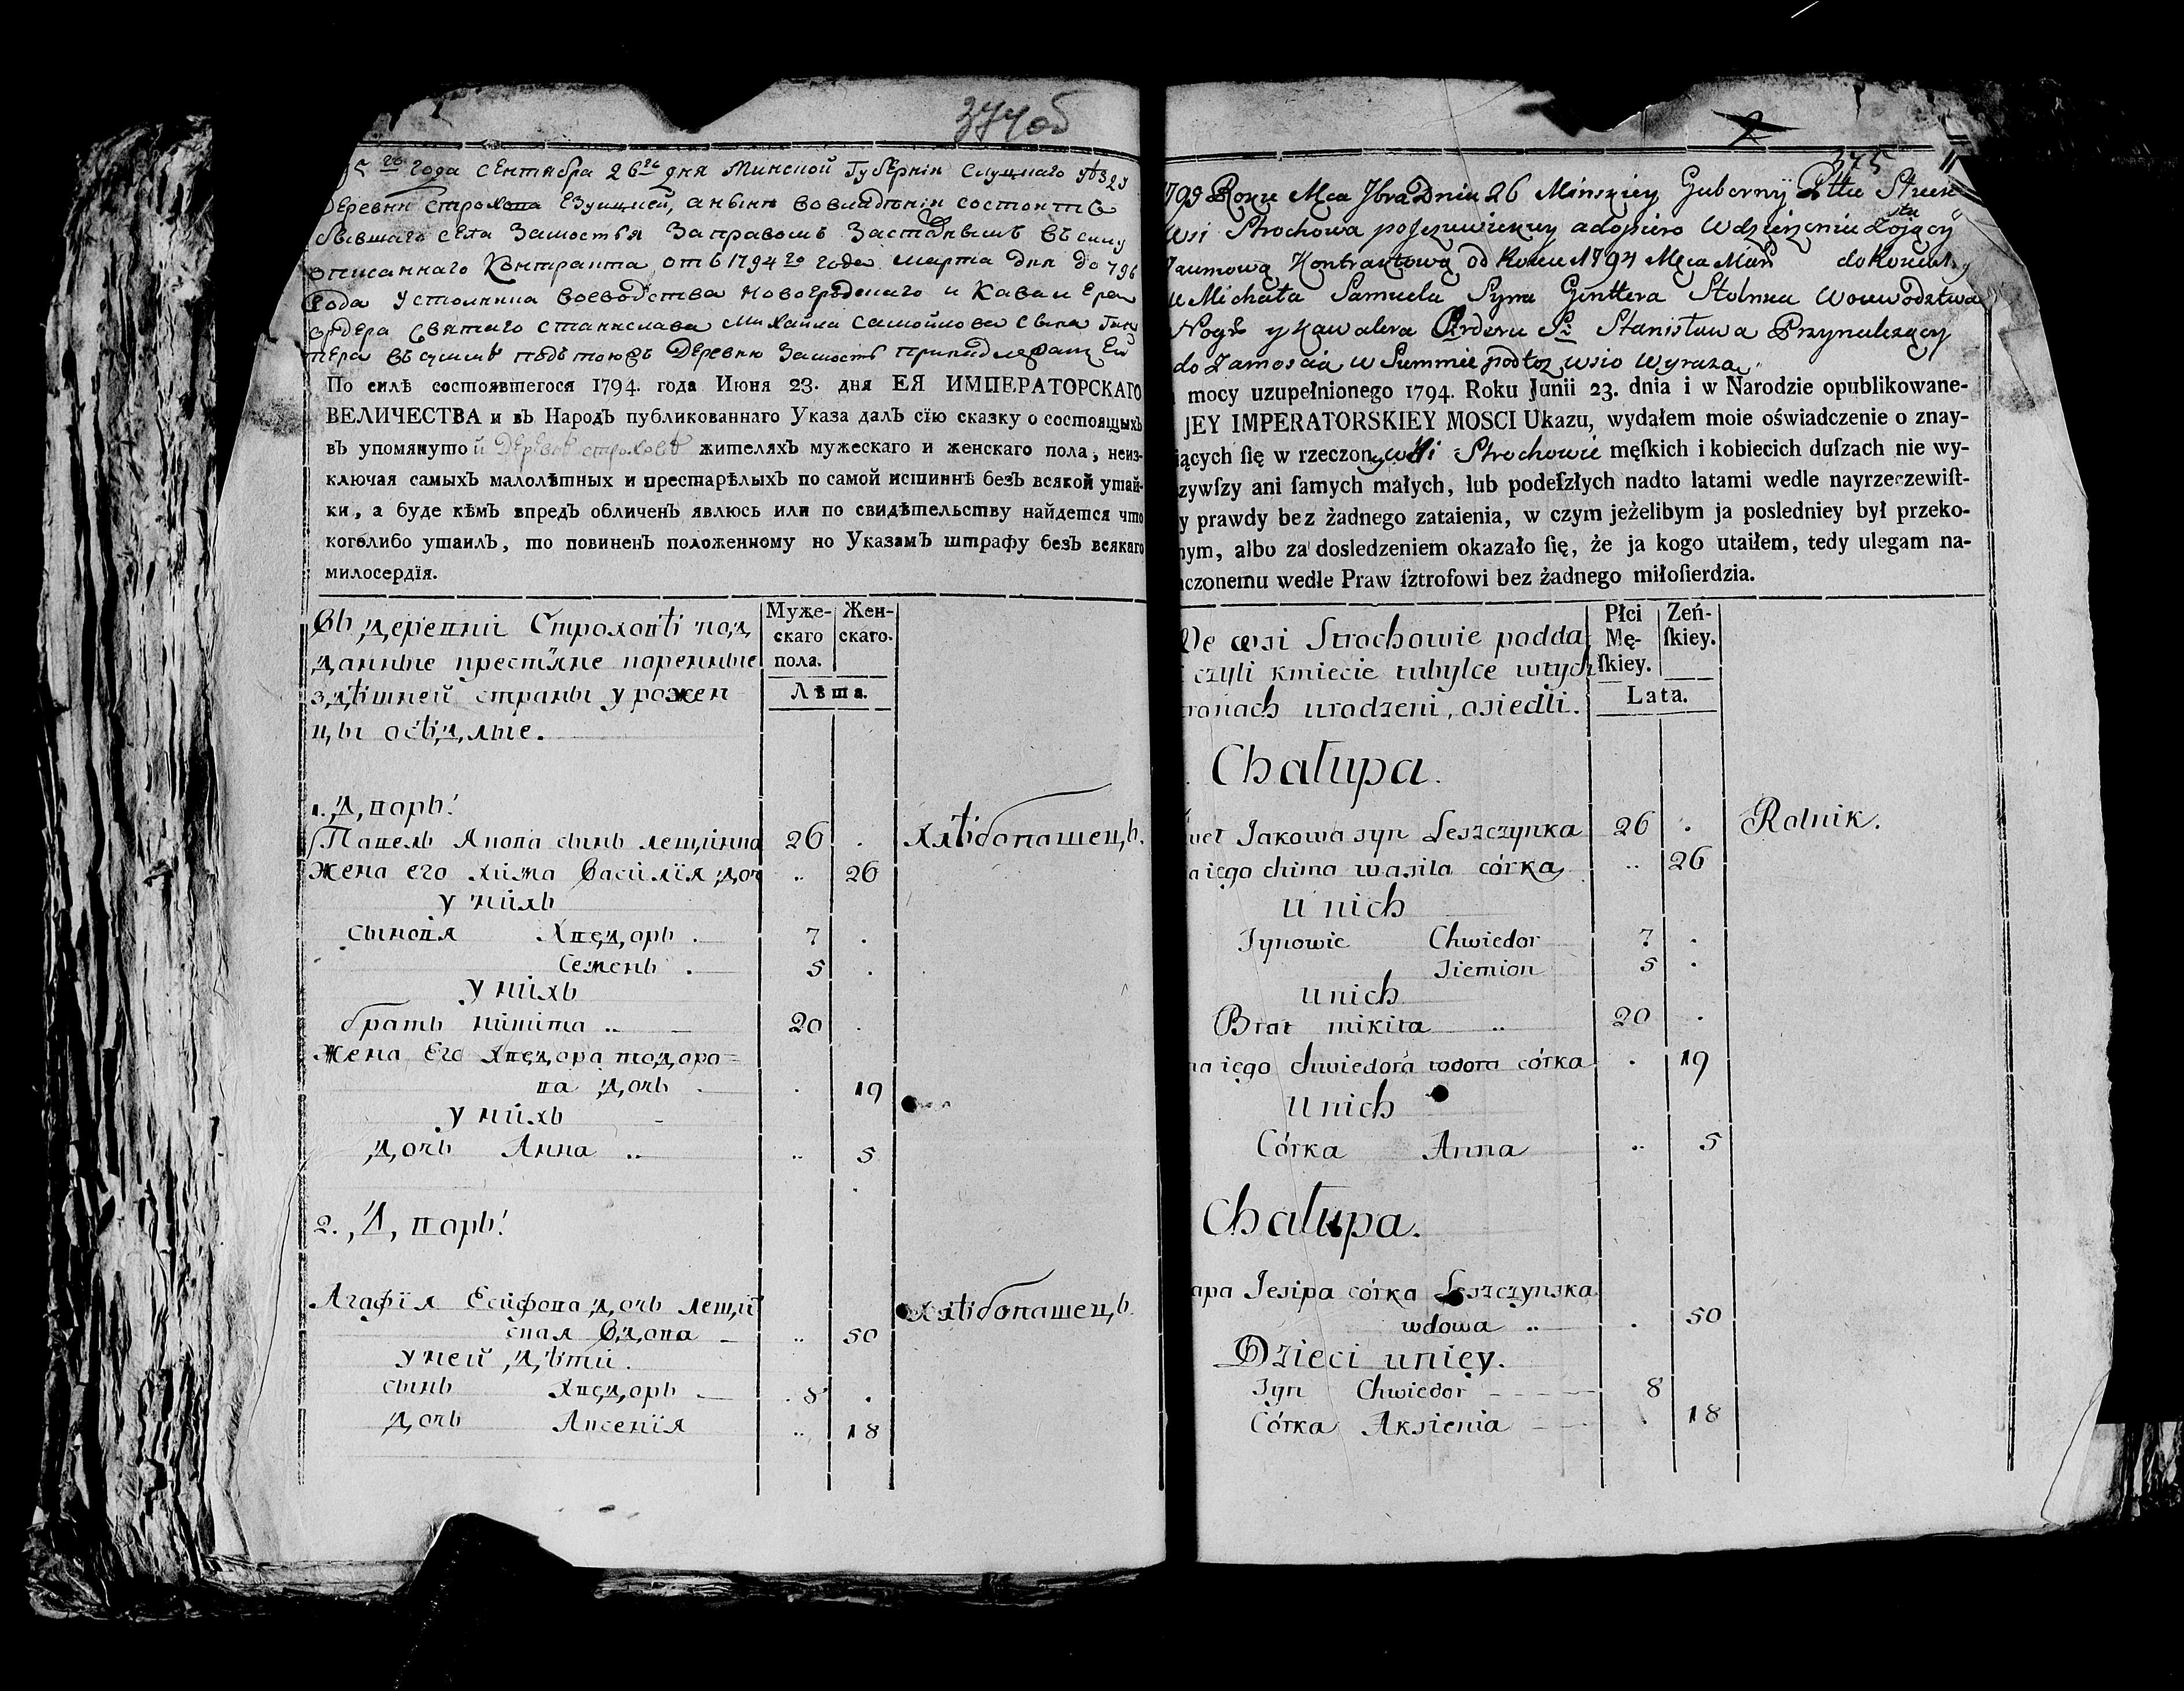 374 об
5 го года Сентября 26 го дня Минской Губернии Слуцкаго
Деревни Строхова Езуицкей, а нынѣ во владѣнии состоить
бывшаго села Замостья Заправомъ Заставнымъ въ силу
описаннаго Контракта отъ 1794 го года марта дня до 796
Года У столника Воеводства Новогродскаго и Кавалера
Ордера Святаго Станислава Михайла Самойлова сына
тера въ сумме подъ тоюжъ Деревню Замость
По силѣ состоявшегося 1794. года Июня 23. дня ЕЯ ИМПЕРАТОРСКАГО
ВЕЛИЧЕСТВА и въ Народъ публикованнаго Указа далъ сїю сказку о состоящихъ
въ упомянутой Деревнѣ Строховѣ жителяхъ мужескаго и женскаго пола, неиз-
ключая самыхъ малолѣтныхъ и престарѣлыхъ по самой истиннѣ безъ всякой утай-
ки, а буде кѣмъ впредь обличенъ явлюсь или по свидѣтельству найдется что
коголибо утаилъ, то повиненъ положенному по Указамъ штрафу безъ всякаго
милосердїя.
Муже-скаго пола. Жен-скаго.
Лѣта.
Въ деревни Строховѣ под
данные крестїяне коренные
здѣшней страны урожен
цы осѣдлые.
1. Дворъ!
Павелъ Якова сынъ лещинка 26 . Хлѣбопашецъ.
Жена его хима Василїя доч .. 26
у нихъ
сыновя Хведоръ . 7 .
Семенъ . 5 .
у нихъ
братъ никита .. 20 .
Жена Его Хведора тодоро=
ва дочь . 19
у нихъ
дочь Анна .. .. 5
2. Дворъ!
Агафїя Есифова дочь лещи
ская Вдова .. 50 Хлѣбопашецъ.
у ней дѣти.
сынъ Хведоръ 8 .
дочь Аксенїя .. 18
2
375
179 Roku Mca 7bra Dnia 26 Minskiey Guberny Pttu
Wsi Strochowa pojezuwickiey a dopiero w dzierżeniu
Za umową Kontraktową od Roku 1794 Mca do Roku
u Michała Samuela Syna Ginttera Stolnika Woiewodztwa
Nogr y Kawalera Orderu S: Stanisława Przynależący
do Zamoscia w Summie podtoz wsio wyraza
mocy uzupełnionego 1794. Roku Junii 23. dnia i w Narodzie opublikowane-
JEY IMPERATORSKIEY MOSCI Ukazu, wydałem moie oświadczenie o znay-
iących ſię w rzeczoney wsi Strochowie męſkich i kobiecich duſzach nie wy-
zywſzy ani ſamych małych, lub podeſzłych nadto latami wedle nayrzeczewiſt-
y prawdy bez żadnego zataienia, w czym jeżelibym ja posledniey był przeko-
nym, albo za dosledzeniem okazało ſię, że ja kogo utaiłem, tedy ulegam na-
czonemu wedle Praw ſztrofowi bez żadnego miłoſierdzia.
Płci Mę-ſkiey. Zeń-ſkiey.
Lata.
We wsi Strochowie podda
czyli kmiecie tubylce w tych
ronach urodzeni, osiedli.
Chałupa.
weł Jakowa syn Leszczynka 26 . Rolnik.
a iego chima wasila córka .. 26
u nich
Synowie Chwiedor 7 .
Siemion 5 .
u nich
Brat mikita .. 20 .
na iego chwiedora todora córka . 19
u nich
Córka Anna .. 5
Chałupa.
apa Jesipa córka Leszczynska
wdowa .. . 50
Dzieci u niey.
Syn Chwiedor 8
Córka Aksienia . 18